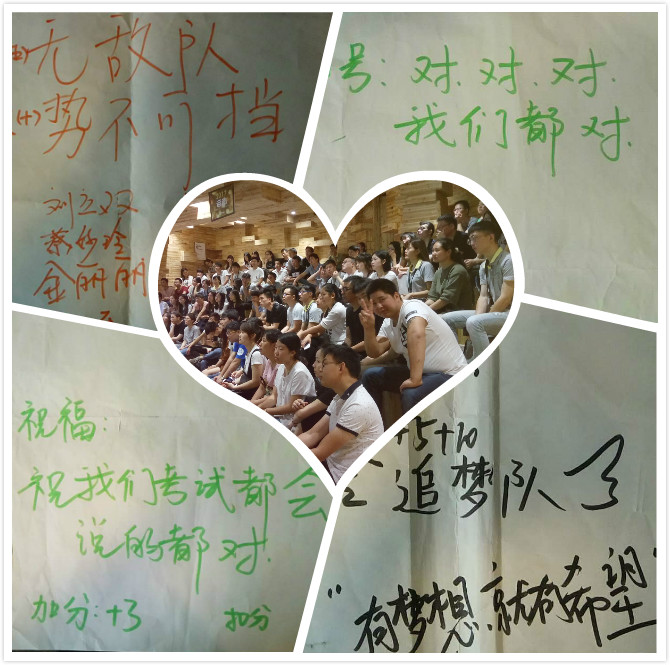 无敌队
势不可挡
刘立双
蔡妙玲
金丽丽
号：对.对.对.
我们都对.
祝福：
祝我们考试都会
说的都对.
加分：+3 扣分
+5+10
追梦队了
"有梦想.就有希望"